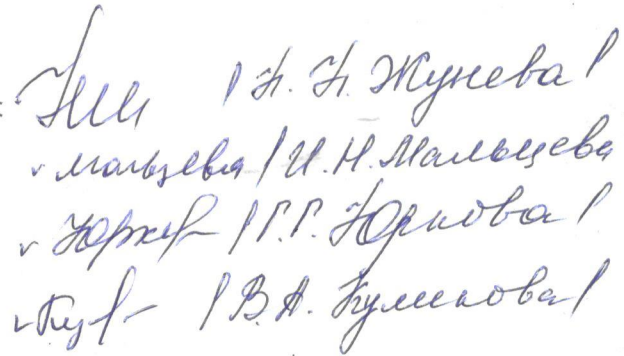 /Н. Н. Жунева/
Мальцева /И. Н. Мальцева
/Г. Г. Юркова/
/В. А. Куликова/